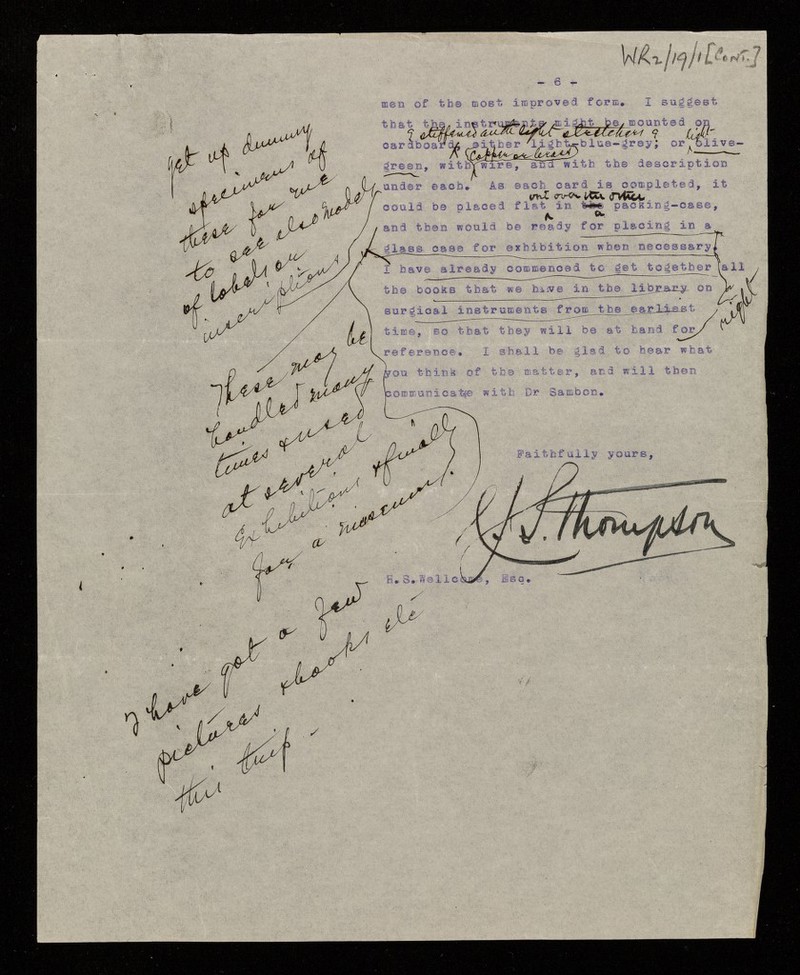 WR2/19/1 [CONT.]
- 6 -
men of the most improved form. I suggest
that the instruments might be mounted on
& stiffened with light stretchers & light
cardboard, either light-blue-grey; or olive-
(copper or brass)
green, with wire, and with the description
under each. As each card is completed, it
one over the other
could be placed flat in the packing-case,
a
and then would be ready for placing in a
glass case for exhibition when necessary.
I have already commenced to get together all
the books that we have in the library on
surgical instruments from the earliest
time, so that they will be at hand for
reference. I shall be glad to hear what
you think of the matter, and will then
communicate with Dr Sambon.
right
Faithfully yours,
C J S. Thompson
H.S.Wellcome, Esq.
get up dummy
specimens of
these for me
to see also models
of labels on
inscriptions
These may be
handled many
times & used
at several
Exhibitions & finally
for a museum.
I have got a few
pictures & books etc
this trip -